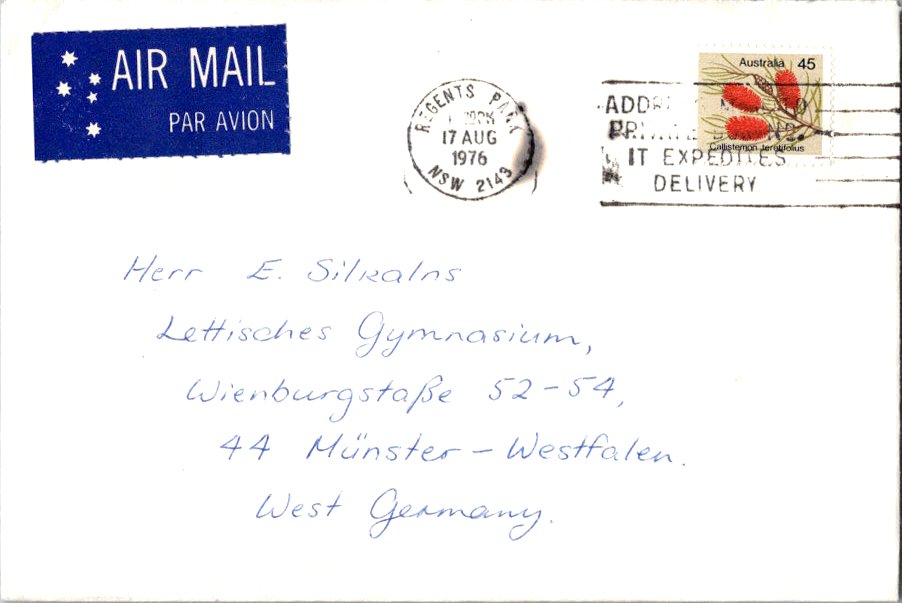 AIR MAIL
PAR AVION
REGENTS PARK
17 AUG
1976
NSW 2143
Australia 45
Callistemon teretifolius
IT EXPEDITES
DELIVERY
Herr E. Silkalns
Lettisches Gymnasium,
Wienburgstaße 52-54,
44 Münster-Westfalen.
West Germany.